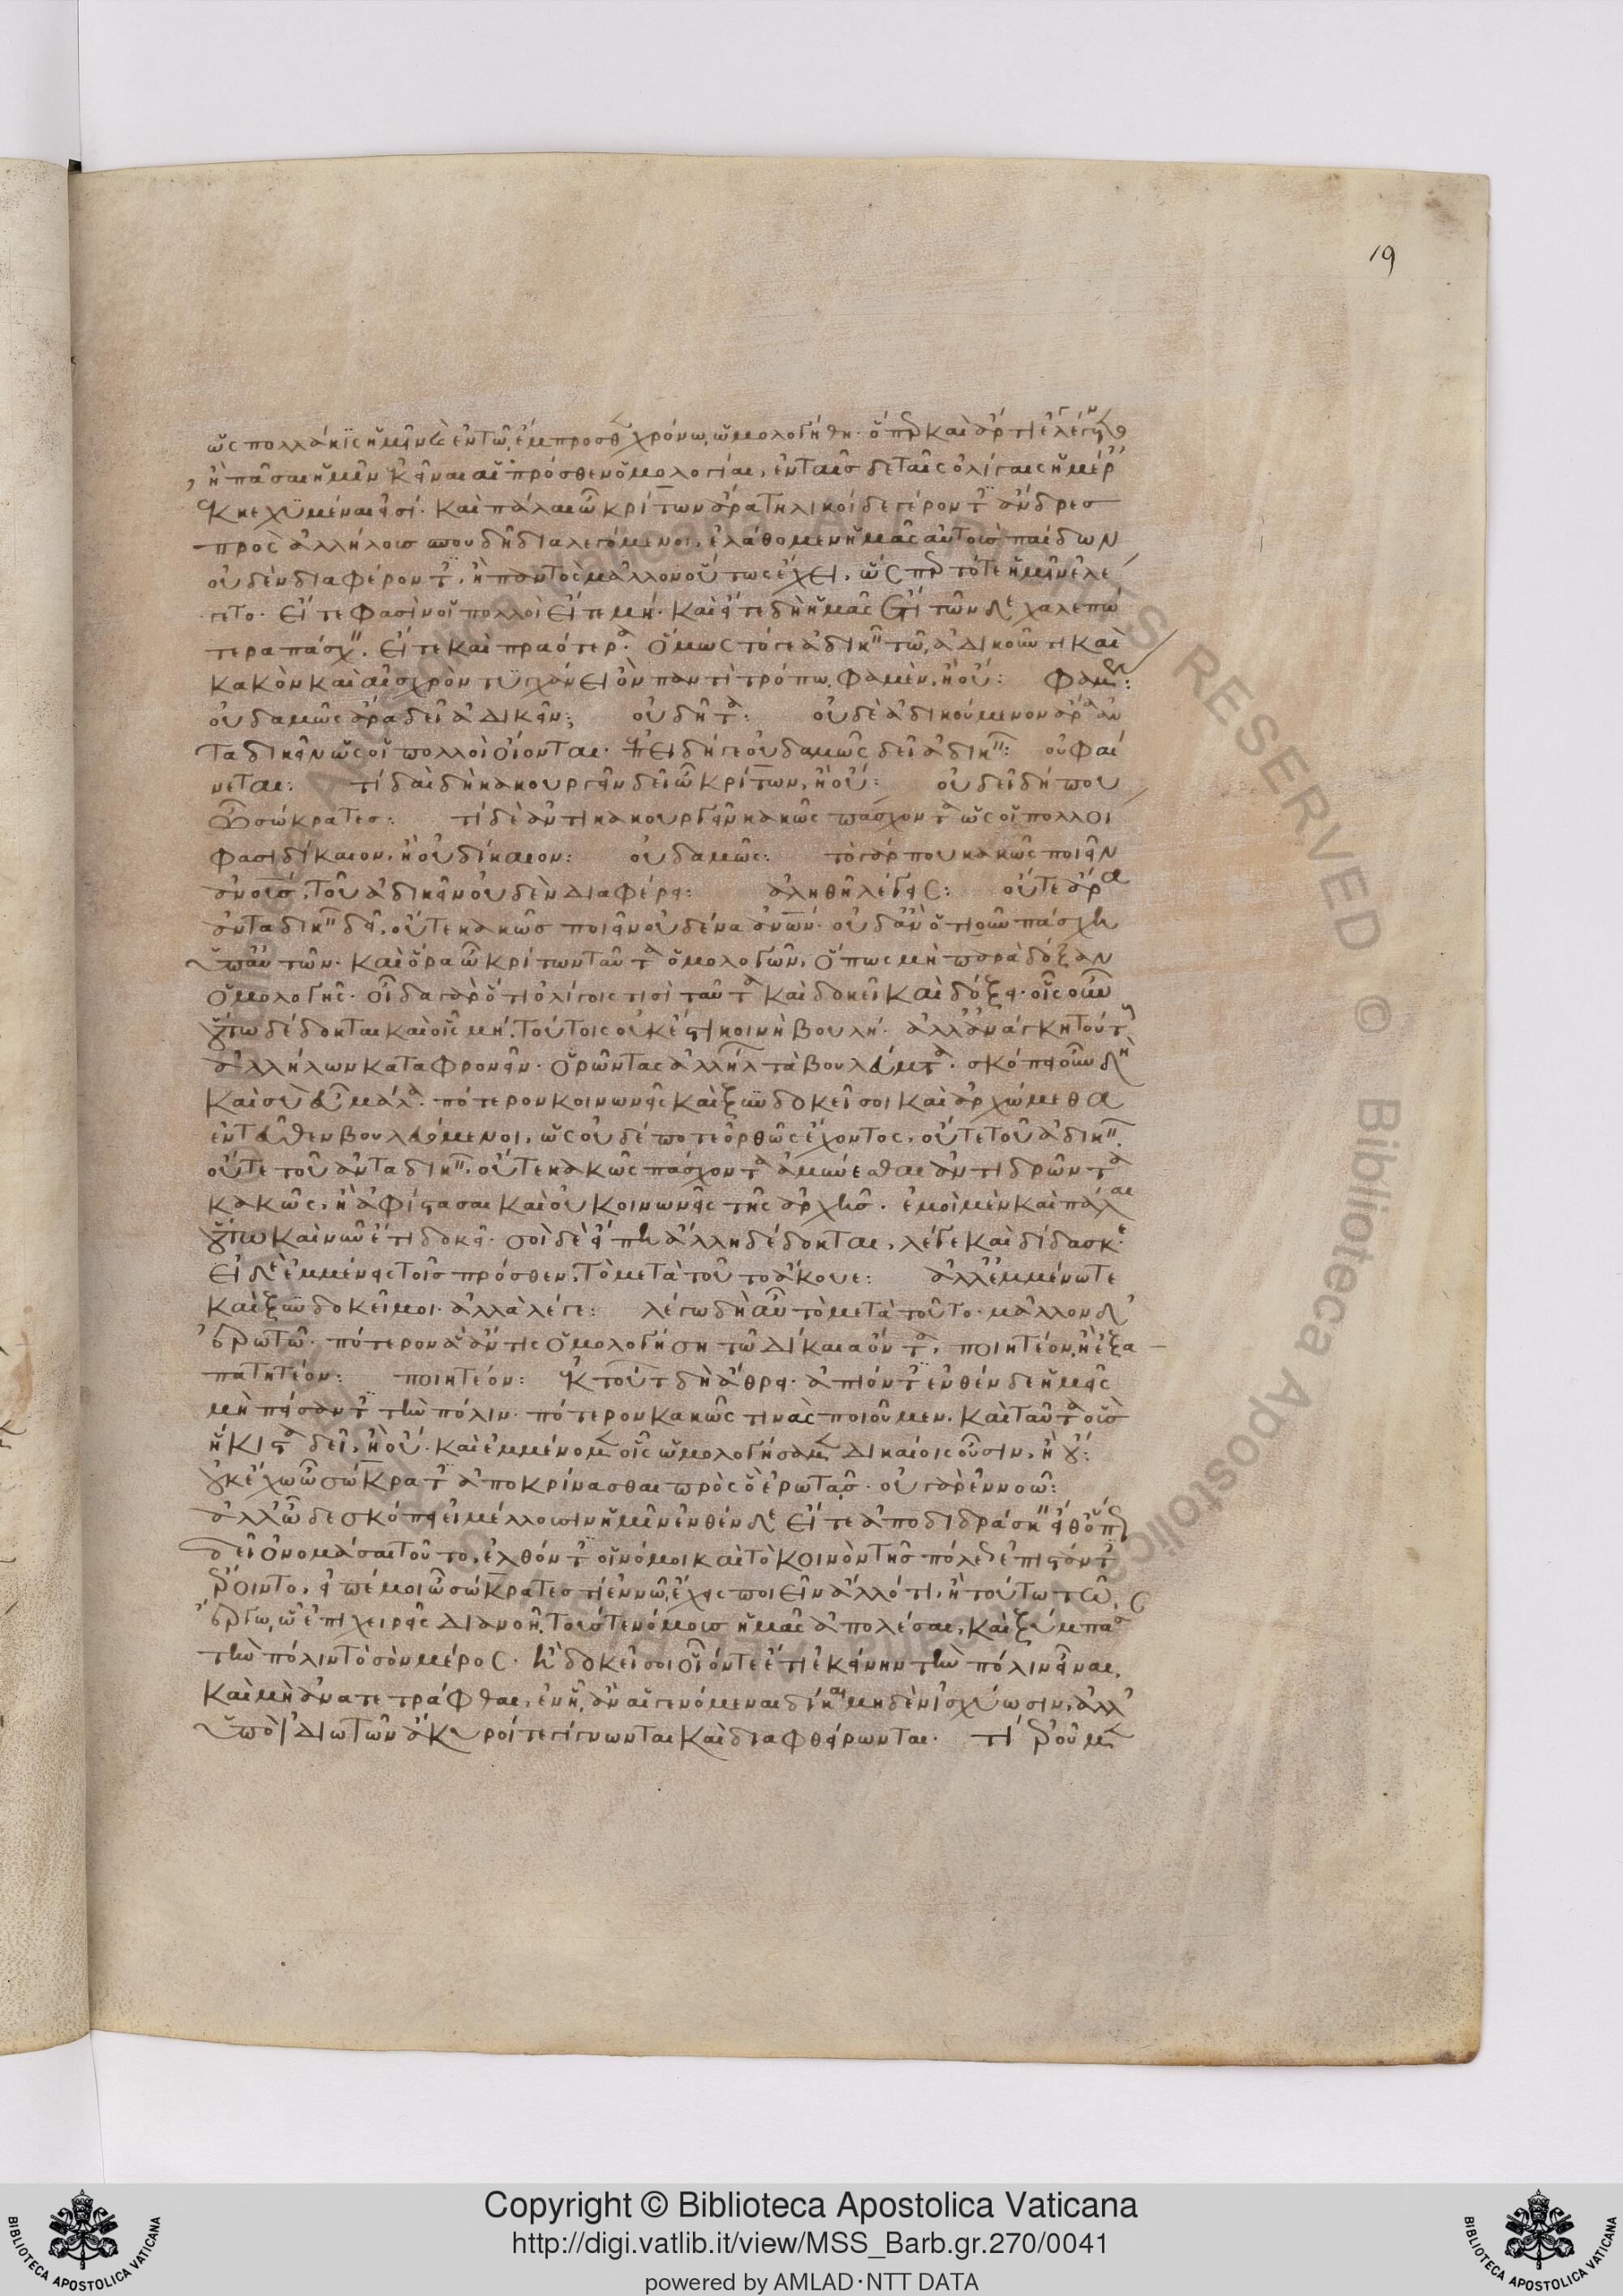 19
ὡς πολλάκις ἡμῖν καὶ ἐν τῷ ἔμπροσθεν χρόνῳ ὡμολογήθη· ὅπερ καὶ ἄρτι ἐλέγετο
ἢ πᾶσαι ἡμῖν ἐκεῖναι αἱ πρόσθεν ὁμολογίαι, ἐν ταῖσδε ταῖς ὀλίγαις ἡμέραις
ἐκκεχυμέναι εἰσί· καὶ πάλαι ὦ κρίτων ἄρα τηλικοίδε γέροντες ἄνδρες
πρὸς ἀλλήλους σπουδῇ διαλεγόμενοι, ἐλάθομεν ἡμᾶς αὐτοὺς παίδων
οὐδὲν διαφέροντες, ἢ παντὸς μᾶλλον οὕτως ἔχει, ὥσπερ τότε ἡμῖν ἐλέ
γετο· εἴτε φασὶν οἱ πολλοὶ εἴτε μή· καὶ εἴτε δεῖ ἡμᾶς ἔτι τῶνδε χαλεπώ
τερα πάσχειν, εἴτε καὶ πραότερα ὅμως τό γε ἀδικεῖν τῷ ἀδικοῦντι καὶ
κακὸν καὶ αἰσχρὸν τυγχάνει ὂν παντὶ τρόπῳ φαμὲν, ἢ οὔ: φαμέν:
οὐδαμῶς ἄρα δεῖ ἀδικεῖν: οὐ δῆτα: οὐδὲ ἀδικούμενον ἄρα ἀν
ταδικεῖν ὡς οἱ πολλοὶ οἴονται· ἐπειδή γε οὐδαμῶς δεῖ ἀδικεῖν: οὐ φαί
νεται: τί δαὶ δὴ κακουργεῖν δεῖ ὦ κρίτων, ἢ οὔ: οὐ δεῖ δή που
ὦ σώκρατες: τί δὲ ἀντικακουργεῖν κακῶς πάσχοντα ὡς οἱ πολλοί
φασι δίκαιον, ἢ οὐ δίκαιον: οὐδαμῶς: τὸ γάρ που κακῶς ποιεῖν
ἀνθρώπους, τοῦ ἀδικεῖν οὐδὲν διαφέρει: ἀληθῆ λέγεις: οὔτε ἄρα
ἀνταδικεῖν δεῖ, οὔτε κακῶς ποιεῖν οὐδένα ἀνθρώπων· οὐδ' ἂν ὁτιοῦν πάσχῃ
ὑπ' αὐτῶν· καὶ ὅρα ὦ κρίτων ταῦτα ὁμολογῶν, ὅπως μὴ παρὰ δόξαν
ὁμολογῇς· οἶδα γὰρ ὅτι ὀλίγοις τισὶ ταῦτα καὶ δοκεῖ καὶ δόξει· οἷς οὖν
οὕτω δέδοκται καὶ οἷς μή, τούτοις οὐκ ἔστι κοινὴ βουλή· ἀλλ' ἀνάγκη τούτους
ἀλλήλων καταφρονεῖν· ὁρῶντας ἀλλήλων τὰ βουλεύματα· σκόπει οὖν δὴ
καὶ σὺ εὖ μάλα· πότερον κοινωνεῖς καὶ ξυνδοκεῖ σοι καὶ ἀρχώμεθα
ἐντεῦθεν βουλευόμενοι, ὡς οὐδέποτε ὀρθῶς ἔχοντος, οὔτε τοῦ ἀδικεῖν·
οὔτε τοῦ ἀνταδικεῖν· οὔτε κακῶς πάσχοντα ἀμύνεσθαι ἀντιδρῶντα
κακῶς, ἢ ἀφίστασαι καὶ οὐ κοινωνεῖς τῆς ἀρχῆς· ἐμοὶ μὲν καὶ πάλαι
οὕτω καὶ νῦν ἔτι δοκεῖ· σοὶ δὲ εἴ πῃ ἄλλῃ δέδοκται, λέγε καὶ δίδασκε·
εἰ δὲ ἐμμένεις τοῖς πρόσθεν, τὸ μετὰ τοῦτο ἄκουε: ἀλλ' ἐμμένω τε
καὶ ξυνδοκεῖ μοι· ἀλλὰ λέγε: λέγω δὴ αὖ τὸ μετὰ τοῦτο· μᾶλλον δ'
ἐρωτῶ· πότερον ἃ ἄν τις ὁμολογήσῃ τῳ δίκαια ὄντα, ποιητέον, ἢ ἐξα
πατητέον: ποιητέον: ἐκ τούτων δὴ ἄθρει· ἀπιόντες ἐνθένδε ἡμεῖς
μὴ πείσαντες τὴν πόλιν· πότερον κακῶς τινὰς ποιοῦμεν, καὶ ταῦτα οὓς
ἥκιστα δεῖ, ἢ οὔ· καὶ ἐμμένομεν οἷς ὡμολογήσαμεν δικαίοις οὖσιν, ἢ οὔ:
οὐκ ἔχω ὦ σώκρατες ἀποκρίνασθαι πρὸς ὃ ἐρωτᾷς· οὐ γὰρ ἐννοῶ:
ἀλλ' ὧδε σκόπει εἰ μέλλουσιν ἡμῖν ἐνθένδε εἴτε ἀποδιδράσκειν εἴθ' ὅπως
δεῖ ὀνομάσαι τοῦτο, ἐλθόντες οἱ νόμοι καὶ τὸ κοινὸν τῆς πόλεως ἐπιστάντες
ἔροιντο, εἰπέ μοι ὦ σώκρατες τί ἐν νῷ ἔχεις ποιεῖν ἄλλό τι, ἢ τούτῳ τῷ
ἔργῳ ᾧ ἐπιχειρεῖς διανοῇ τούς τε νόμους ἡμᾶς ἀπολέσαι, καὶ ξύμπασαν
τὴν πόλιν τὸ σὸν μέρος· ἢ δοκεῖ σοι οἷόν τε ἔτι ἐκείνην τὴν πόλιν εἶναι,
καὶ μὴ ἀνατετράφθαι, ἐν ᾗ ἂν αἱ γενόμεναι δίκαι μηδὲν ἰσχύωσιν, ἀλλ'
ὑπὸ ἰδιωτῶν ἄκυροί τε γίγνωνται καὶ διαφθείρωνται· τί ἐροῦμεν
Copyright © Biblioteca Apostolica Vaticana
http://digi.vatlib.it/view/MSS_Barb.gr.270/0041
powered by AMLAD·NTT DATA